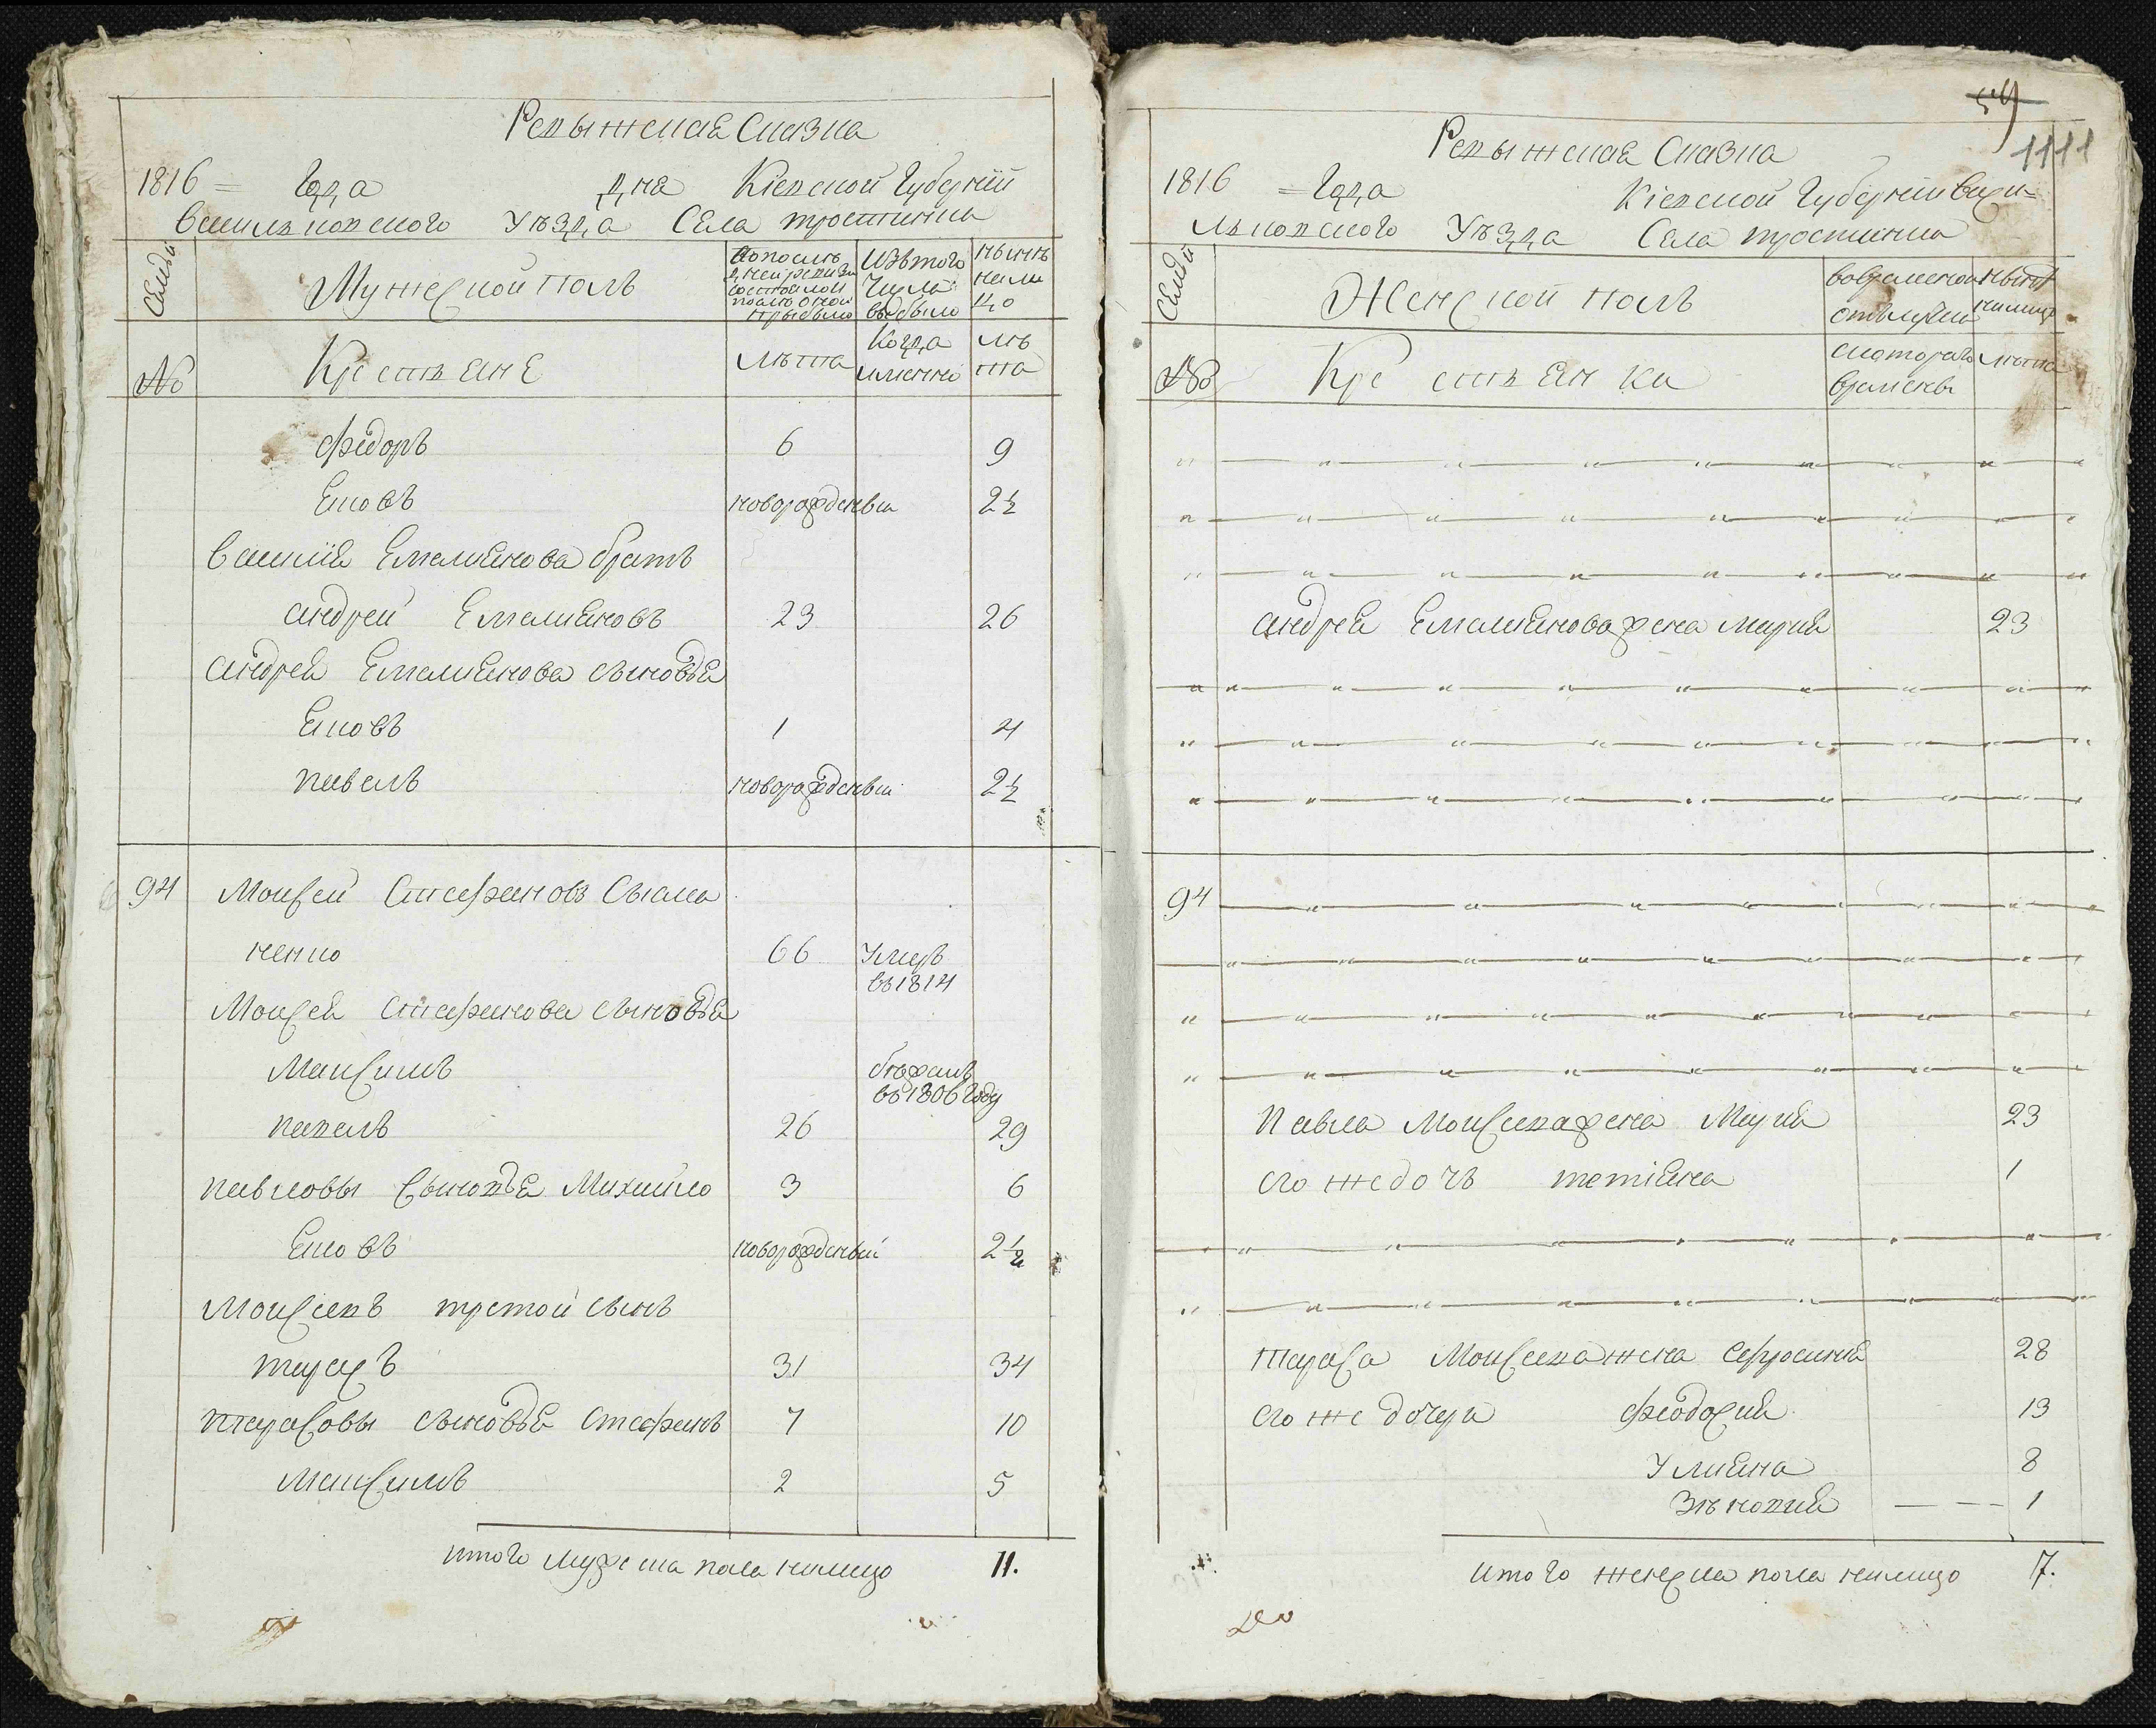 Ревыжская Сказка
1816 = Года дня Кіевской Губерніи
Василковского Уѣзда Села тростинки
Семьи
Мужеской полъ
Изътого
Числа
выбыло
нынѣ
нали
цо
№
Крестяне
лѣта
Когда
имянно
лѣ
та
Федоръ 6 9
Яковъ новорожденъи 2½
Василия Емелиянова братъ
андрей Емелияновъ 23 26
андрея Емелиянова сыновья
Яковъ 1 4
павелъ новорожденъи 2½
94 Моисей Стефановъ
ненко 66 Умеръ
въ1814
Моисея Стефанова сыновья
Максимъ бежалъ
въ1806году
павелъ 26 29
павловы сыновья Михайло 3 6
Яковъ новорожденъй 2½
Моисеевъ третой сынъ
тарасъ 31 34
тарасовы сыновья Стефанъ 7 10
Максимъ 2 5
итого мужеска пола налицо 11.
54
1111
Ревыжская Сказка
1816 = Года Кіевской Губерніи Васи=
лковского Уѣзда Села тростинки
Семьи
Женской полъ
вовременой
отълучки
нынѣ
налицо
№
Крестянки
скоторого
времены
лѣта
андрея Емелиянова жена Мария 23
94
Павла Моисеева жена Мария 23
его же дочъ тетіяна 1
тараса Моисеева жена Ефросиния 28
его же дочери Феодосия 13
Улияна 8
Зѣновия — — — 1
итого женска пола налицо 7.